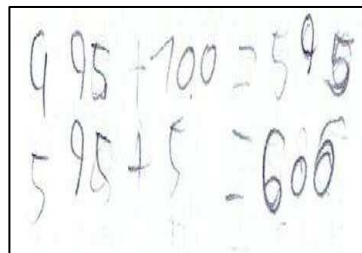 495 + 100 = 595
595 + 5 = 600